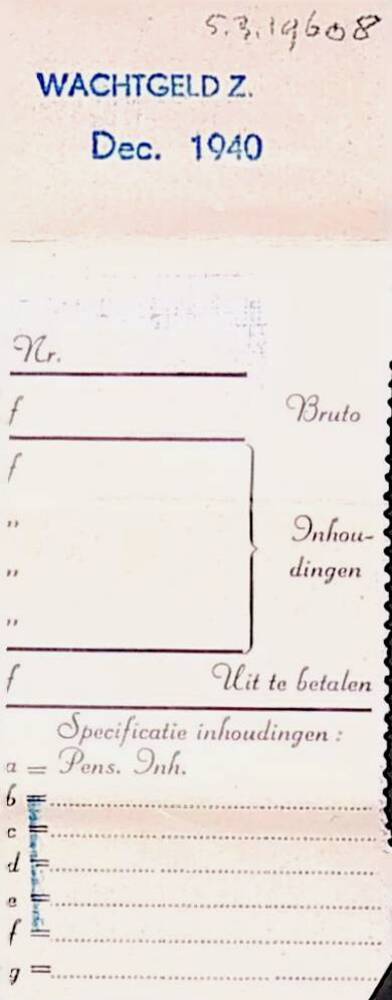 5.3.19608
WACHTGELD Z.
Dec. 1940
Nr.
f Bruto
f
„ Inhou-
„ dingen
„
f Uit te betalen
Specificatie inhoudingen :
a = Pens. Inh.
b =
c =
d =
e =
f =
g =